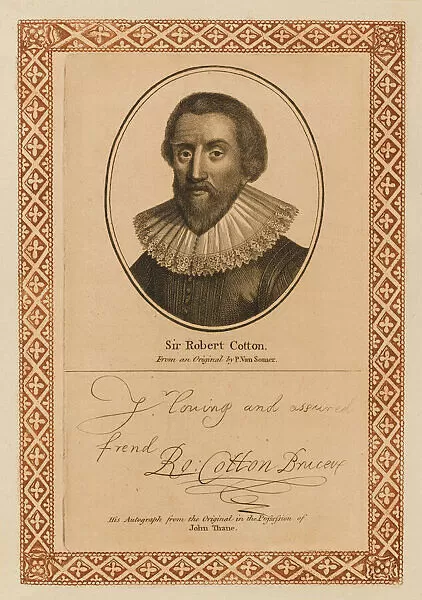 Sir Robert Cotton.
From an Original by P. Van Somer.
Yr. loving and assured
frend
Ro: Cotton Bruceus
His Autograph from the Original in the Possession of
John Thane.